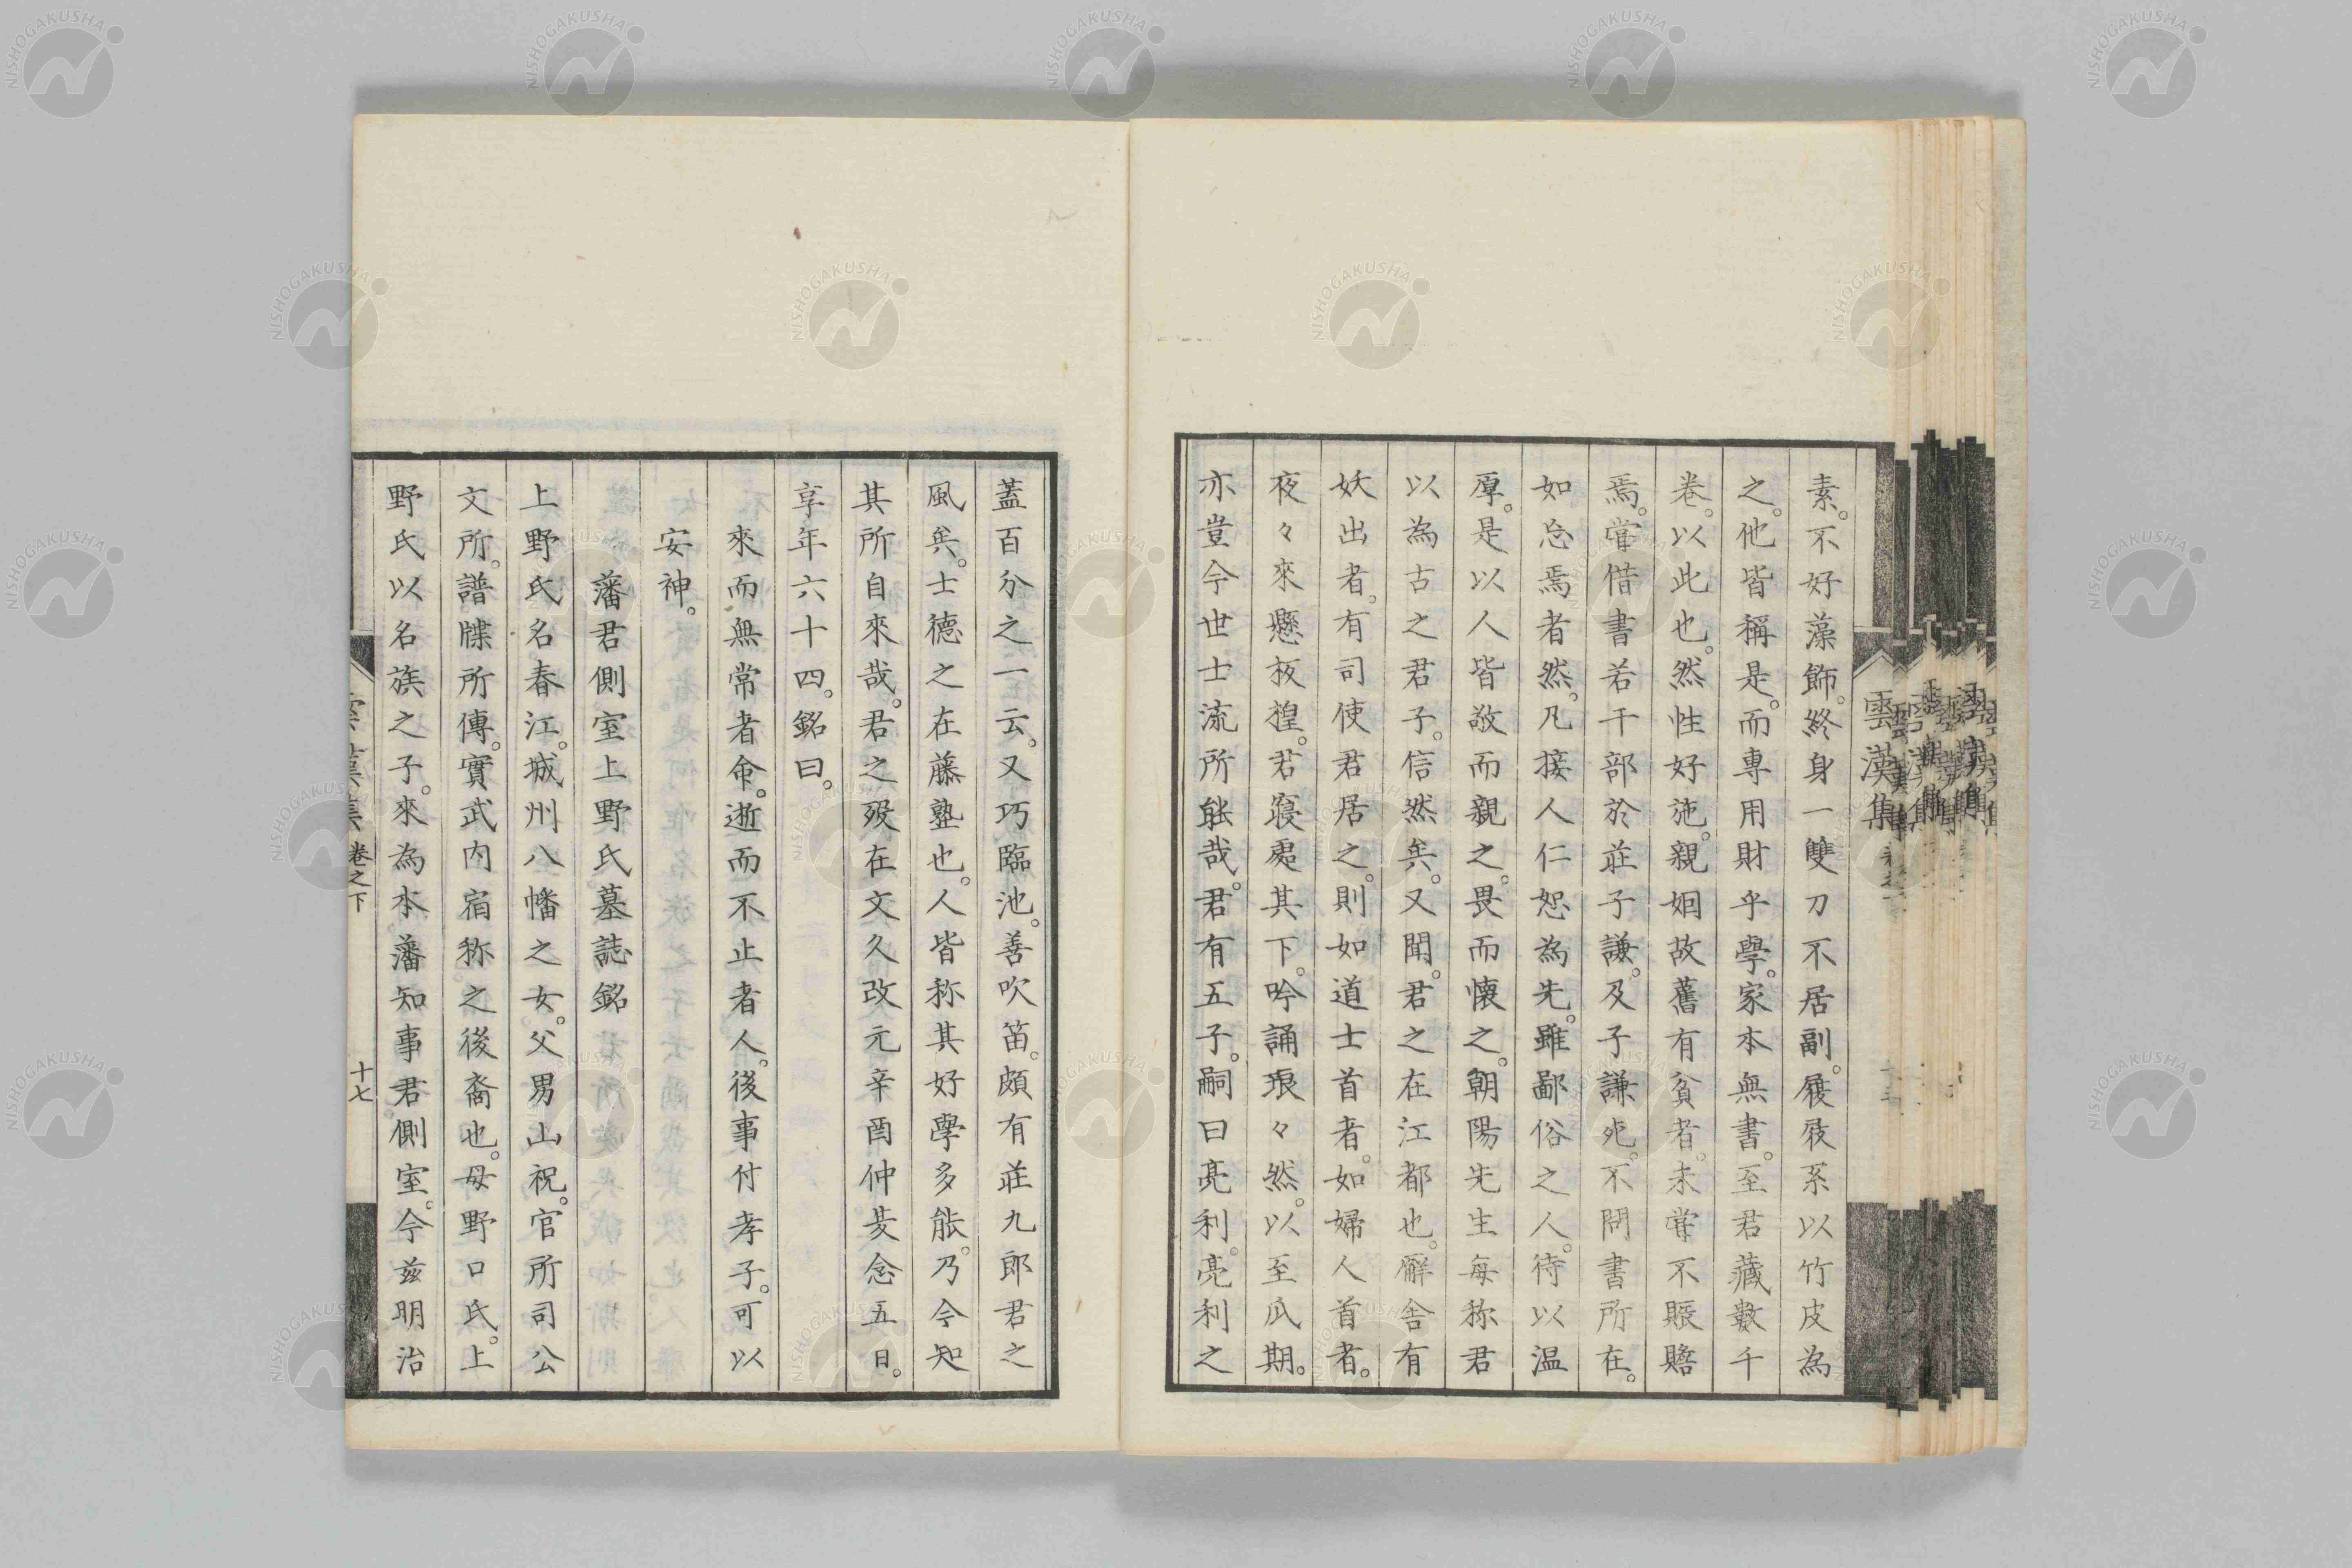 素。不好藻飾。終身一雙刀不居副。履屐系以竹皮為
之。他皆稱是。而專用財乎學。家本無書。至君藏數千
卷。以此也。然性好施。親姻故舊有貧者。未嘗不賑贍
焉。嘗借書若干部於莊子謙。及子謙死。不問書所在。
如忘焉者然。凡接人仁恕為先。雖鄙俗之人。待以温
厚。是以人皆敬而親之。畏而懷之。朝陽先生每称君
以為古之君子。信然矣。又聞。君之在江都也。廨舍有
妖出者。有司使君居之。則如道士首者。如婦人首者。
夜々來懸板揘。君寢處其下。吟誦琅々然。以至瓜期。
亦豈今世士流所能哉。君有五子。嗣曰亮利。亮利之
雲漢集
蓋百分之一云。又巧臨池。善吹笛。頗有莊九郎君之
風矣。士德之在藤塾也。人皆称其好學多能。乃今知
其所自來哉。君之歿在文久改元辛酉仲冬念五日。
享年六十四。銘曰。
來而無常者命。逝而不止者人。後事付孝子。可以
安神。
藩君側室上野氏墓誌銘
上野氏名春江。城州八幡之女。父男山祝。官所司公
文所。譜牒所傳。實武内宿称之後裔也。母野口氏。上
野氏以名族之子。來為本藩知事君側室。今茲明治
雲漢集 卷之下 十七
NISHOGAKUSHA